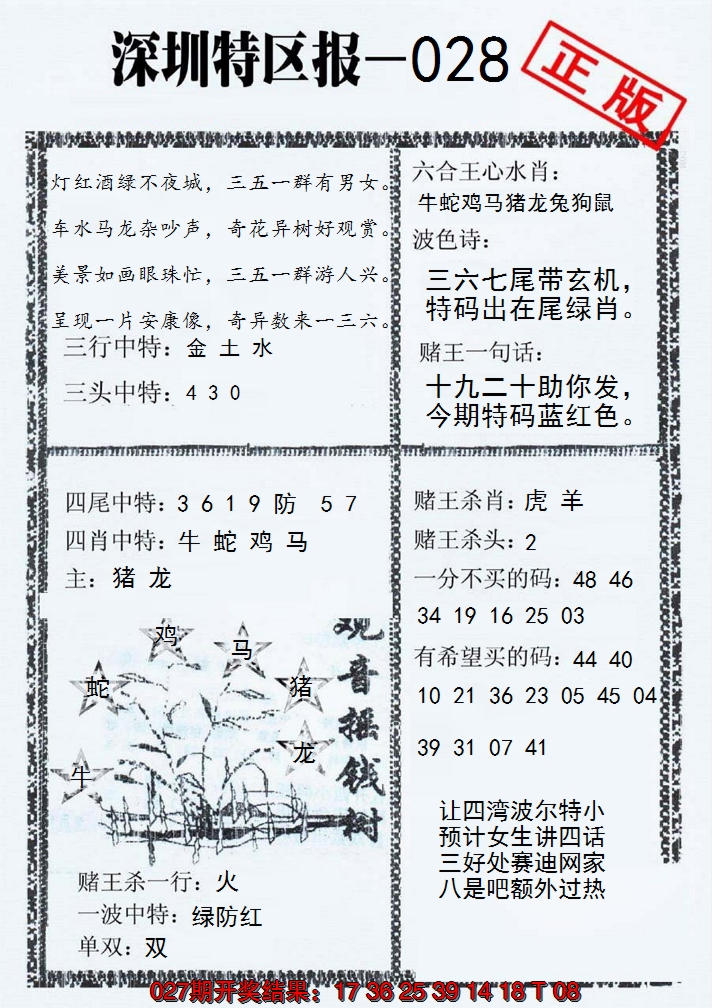 深圳特区报－028
正版
灯红酒绿不夜城，三五一群有男女。
车水马龙杂吵声，奇花异树好观赏。
美景如画眼珠忙，三五一群游人兴。
呈现一片安康像，奇异数来一三六。
三行中特：金 土 水
三头中特：4 3 0
六合王心水肖：
牛蛇鸡马猪龙兔狗鼠
波色诗：
三六七尾带玄机，
特码出在尾绿肖。
赌王一句话：
十九二十助你发，
今期特码蓝红色。
四尾中特：3 6 1 9 防 5 7
四肖中特：牛 蛇 鸡 马
主：猪 龙
鸡
马
蛇
猪
龙
牛
观音摇钱树
赌王杀一行：火
一波中特：绿防红
单双：双
赌王杀肖：虎 羊
赌王杀头：2
一分不买的码：48 46
34 19 16 25 03
有希望买的码：44 40
10 21 36 23 05 45 04
39 31 07 41
让四湾波尔特小
预计女生讲四话
三好处赛迪网家
八是吧额外过热
027期开奖结果：17 36 25 39 14 18 T 08